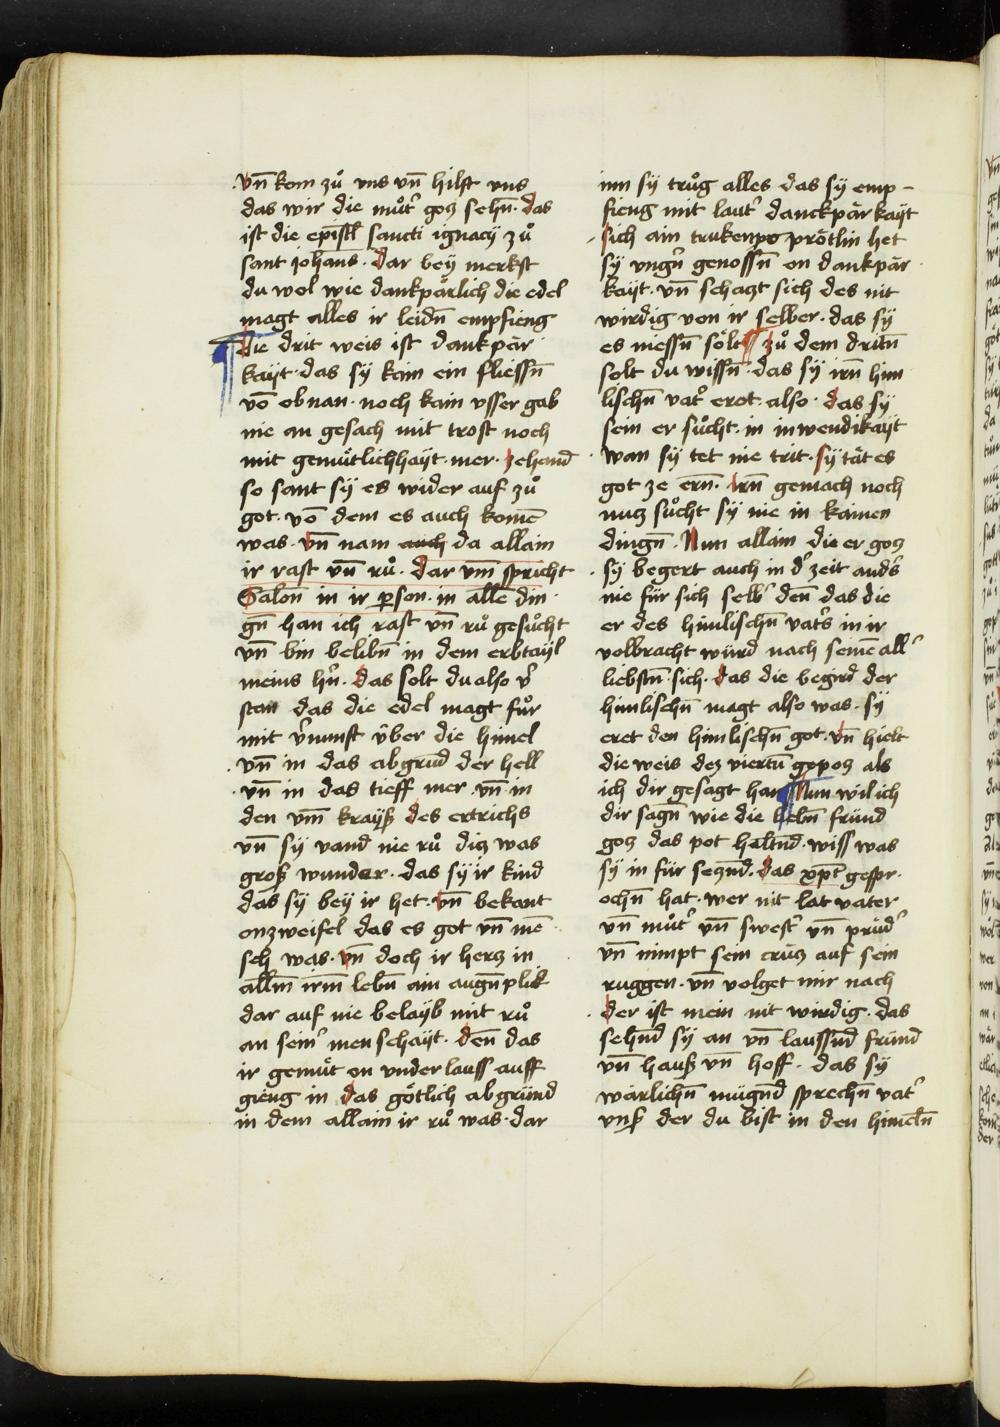 vn̄ kom zů vns vn̄ hilft vns
das wir die můt̉ gotz sehn̄. das
ist die epistl̄ sancti ignacÿ zů
sant johans. dar beÿ merkst
du wol wie dankpärlich die edel
magt alles ir leidn̄ empfieng
die drit weis ist dankpär
kaÿt. das sÿ kain ein fliessn̄
vō obnan. noch kain vsser gab
nie an gesach mit trost noch
mit gemütlichhaÿt. mer. zehand
so sant sÿ es wider auf zů
got. vō dem es auch komē
was. vn̄ nam auch da allain
ir rast vn̄ rů. dar vm̄ spricht
Salon̄ in ir ꝑson. in allē din
gn̄ han ich rast vn̄ rů gesůcht
vn̄ bin belibn̄ in dem erbtaÿl
meins hn̉. das solt du also v̉
stan das die edel magt fůr
mit v̉nunft v̈ber die himel
vn̄ in das abgrūd der hell
vn̄ in das tieff mer. vn̄ in
den vm̄ kraÿß des ertrichs
vn̄ sÿ vand nie rů ditz was
groß wunder. das sÿ ir kind
das sÿ beÿ ir het. vn̄ bekant
onzweifel das es got vn̄ mē
sch was. vn̄ doch ir hertz in
allm̄ irm̄ lebn̄ ain augn̄plik
dar auf nie belaÿb mit rů
an sein̉ menschaÿt. den̄ das
ir gemüt on vnderlauss auff
gieng in das götlich abgründ
in dem allain ir rů was. dar
inn sÿ trůg alles das sÿ emp-
fieng mit laut̉ danckpärkaÿt
sich ain trukenpo prötlin het
sÿ vngn̉ genossn̄ on dankpär
kaÿt. vn̄ schatzt sich des nit
wirdig von ir selber. das sÿ
es niessn̄ sölt zů dem dritn̄
solt du wissn̄. das sÿ irn̄ him
lischn̄ vat̉ erot. also. das sÿ
sein er sůcht. in inwendikaÿt
wan sÿ tet nie trit. sÿ tät es
got ze ern̄. irn̄ gemach noch
nutz sůcht sÿ nie in kainen
dingn̄. Nun allain die er gotz
sÿ begert auch in d̉ zeit and̉s
nie für sich selb̉ den̄ das die
er des himlischn̄ vat̉s in ir
volbracht würd nach seinē all̉
liebstn̄. sich. das die begird der
himlischn̄ magt also was. sÿ
eret den himlischn̄ got. vn̄ hielt
die weis dez viertn̄ gepotz als
ich dir gesagt han Nun wil ich
dir sagn̄ wie die liebn̄ fründ
gotz das pot haltn̄d. wiss was
sÿ in für setzn̄d. das xp̄t gespr
ochn̄ hat. wer nit lat vater
vn̄ můt̉ vn̄ swest̉ vn̄ prüd̉
vn̄ nimpt sein crütz auf sein
ruggen. vn̄ volget mir nach
der ist mein nit wirdig. das
sehn̄d sÿ an vn̄ laussn̄d fründ
vn̄ hauß vn̄ hoff. das sÿ
wärlichn̄ mügn̄d sprechn̄ vat̉
vnß der du bist in den himel̄n